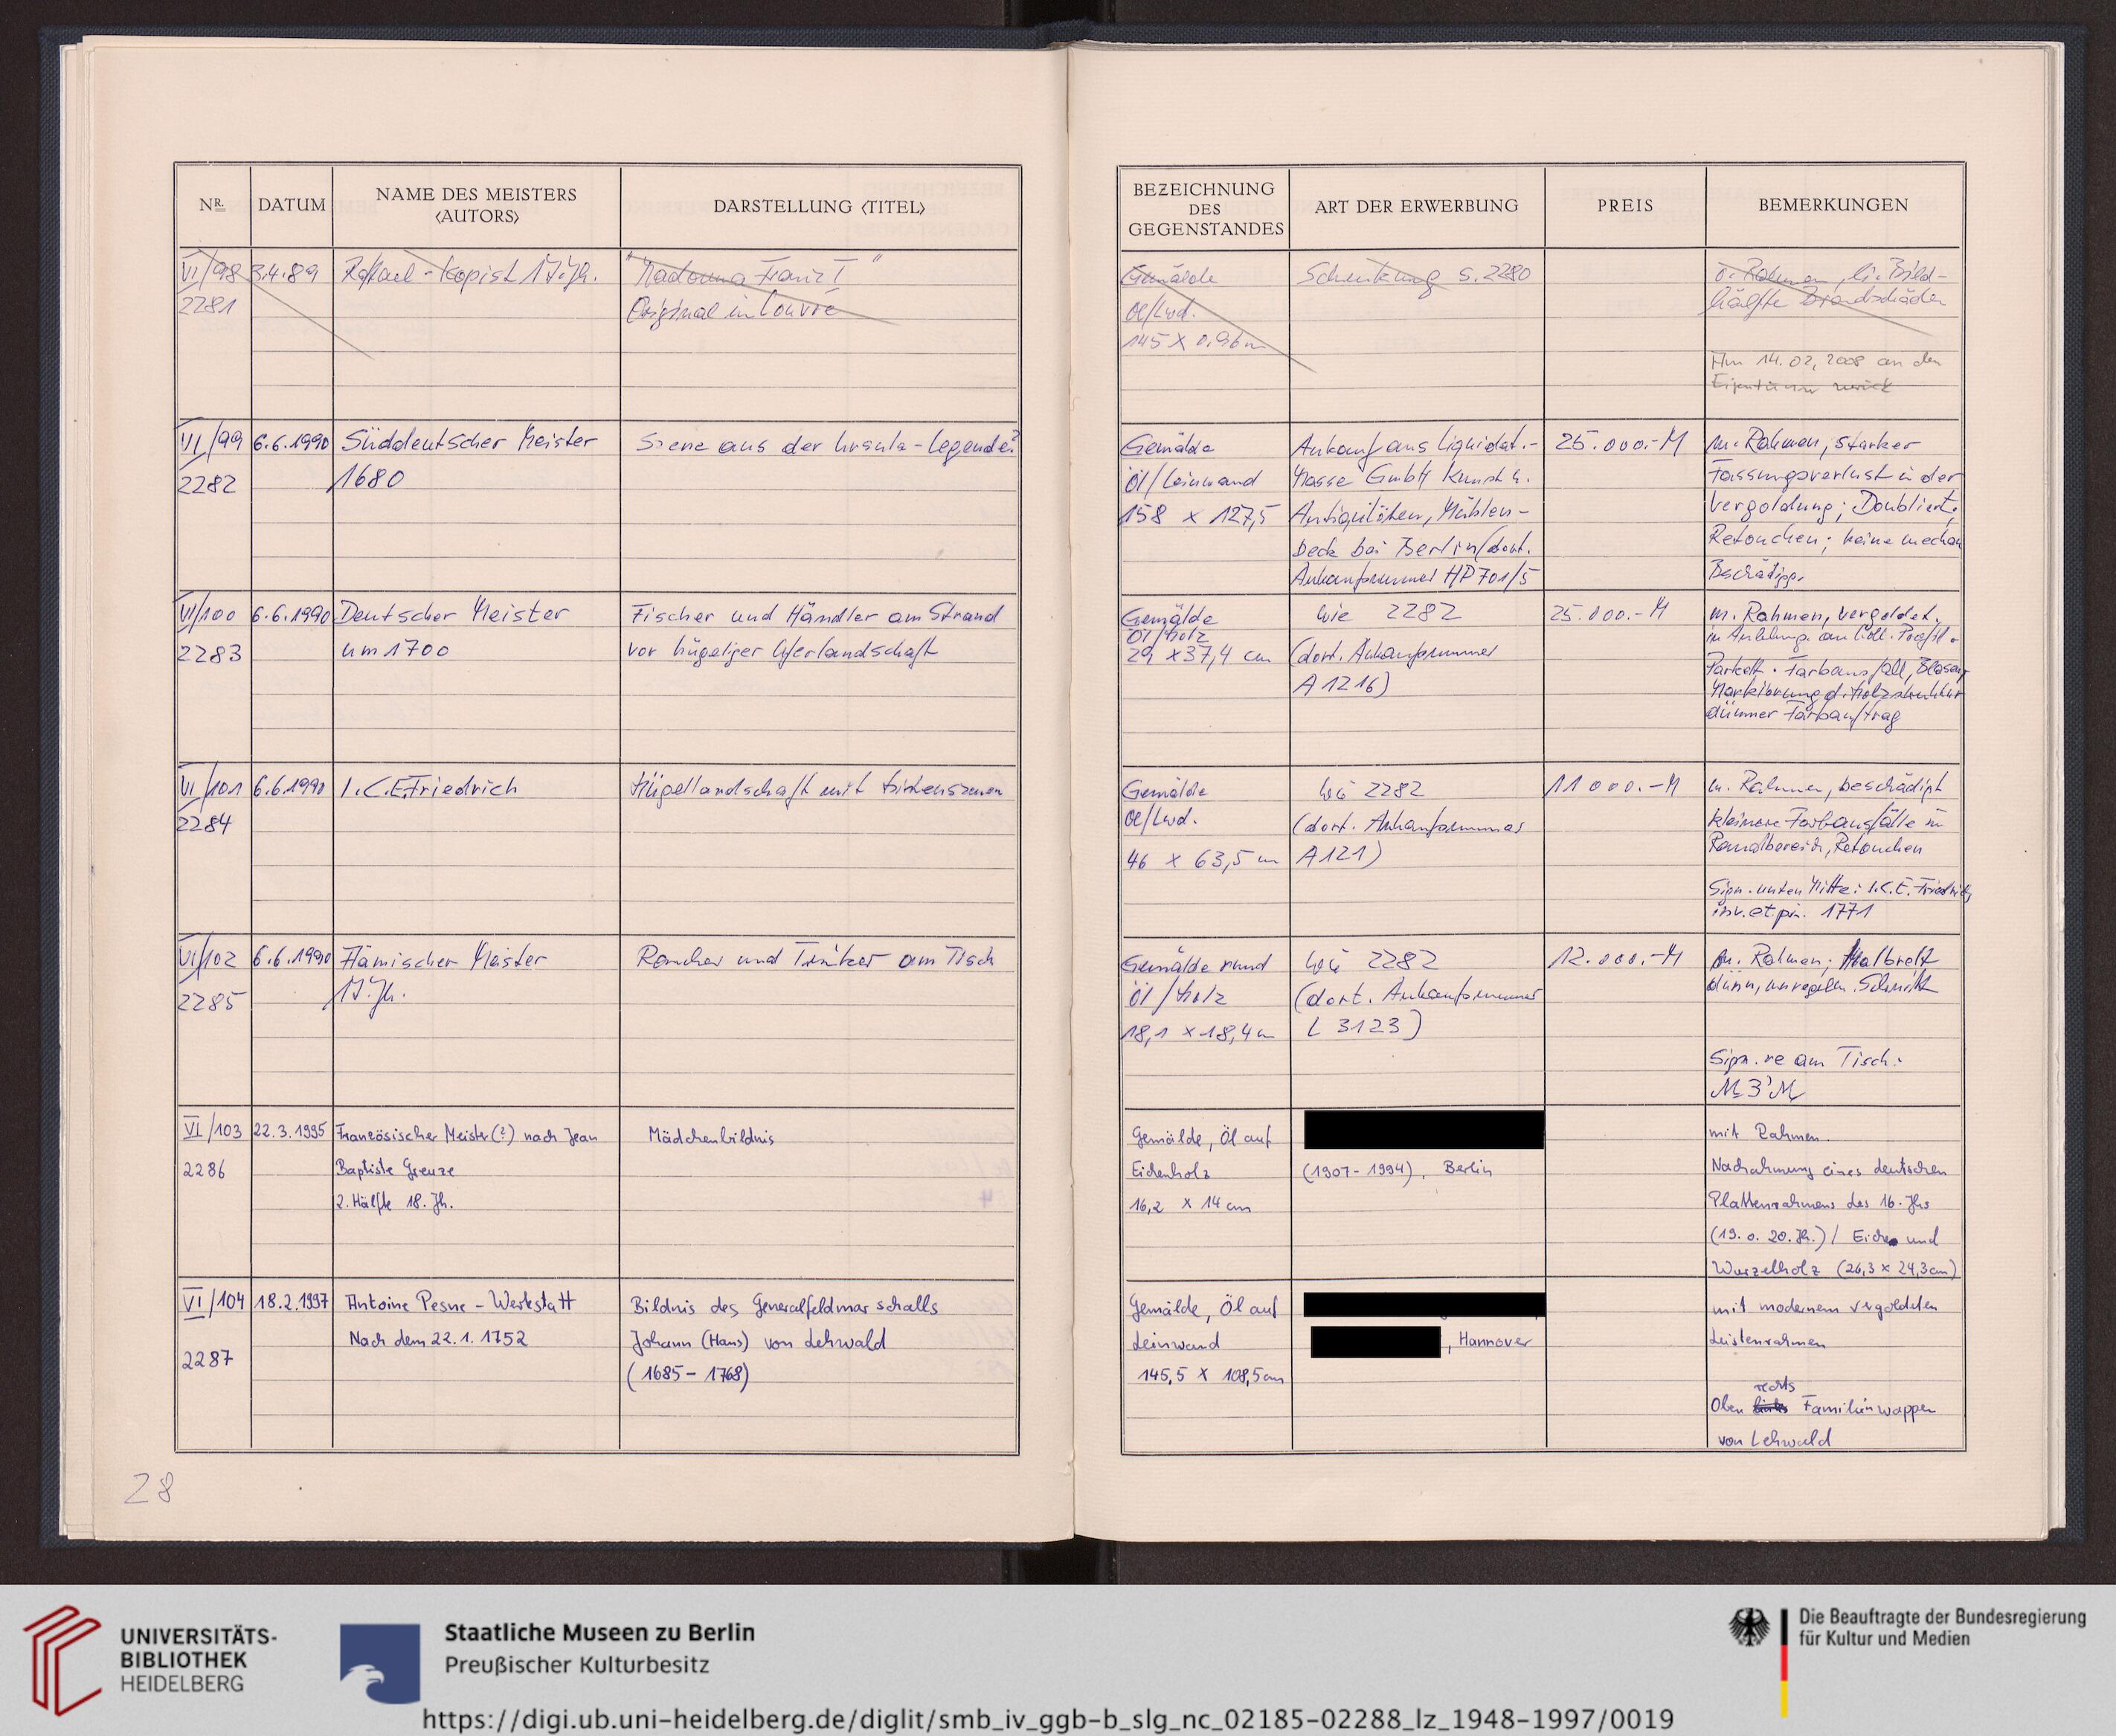 NR.
DATUM
NAME DES MEISTERS
<AUTORS>
DARSTELLUNG <TITEL>
BEZEICHNUNG
DES
GEGENSTANDES
ART DER ERWERBUNG
PREIS
BEMERKUNGEN
VI/98
2281
3.4.89
Raffael-Kopist 17. Jh.
"Madonna Franz I"
Original im Louvre
Gemälde
Öl/Lwd.
145 x 0,96 m
Schenkung s. 2280
o. Rahmen, li. Bild-
hälfte Brandschäden
Am 14.02.2008 an den
Eigentümer zurück
VI/99
2282
6.6.1990
Süddeutscher Meister
1680
Szene aus der Ursula-Legende?
Gemälde
Öl/Leinwand
158 x 127,5
Ankauf aus Liquidat.-
Masse GmbH Kunst u.
Antiquitäten, Mühlen-
beck bei Berlin (dort.
Ankaufsnummer HP 701/5
25.000.-M
m. Rahmen, starker
Fassungsverlust in der
Vergoldung; Doubliert;
Retouchen; keine mechan
Beschädigg.
VI/100
2283
6.6.1990
Deutscher Meister
um 1700
Fischer und Händler am Strand
vor hügeliger Uferlandschaft
Gemälde
Öl/Holz
29 x 37,4 cm
wie 2282
(dort. Ankaufsnummer
A 1216)
25.000.-M
m. Rahmen, vergoldet,
in Anlehnung an holl. Profil.
Parkett. Farbausfall, Blasen,
Markierung d. Holzstruktur
dünner Farbauftrag
VI/101
2284
6.6.1990
I.C.E. Friedrich
Hügellandschaft mit Hirtenszenen
Gemälde
Öl/Lwd.
46 x 63,5 cm
wie 2282
(dort. Ankaufsnummer
A 121)
11000.-M
m. Rahmen, beschädigt
kleinere Farbausfälle im
Randbereich, Retouchen
Sign. unten Mitte: I.C.E. Friedrich
inv. et pin. 1771
VI/102
2285
6.6.1990
Flämischer Meister
17. Jh.
Raucher und Trinker am Tisch
Gemälde rund
Öl/Holz
18,1 x 18,4 cm
wie 2282
(dort. Ankaufsnummer
L 3123)
12.000.-M
m. Rahmen; Malbrett
dünn, unregelm. Schnitt
Sign. re am Tisch:
VI/103
2286
22.3.1995
Französischer Meister (?) nach Jean
Baptiste Greuze
2. Hälfte 18. Jh.
Mädchenbildnis
Gemälde, Öl auf
Eichenholz
16,2 x 14 cm
(1907-1994), Berlin
mit Rahmen
Nachahmung eines deutschen
Plattenrahmens des 16. Jhs
(19. o. 20. Jh.) / Eiche und
Wurzelholz (26,3 x 24,3 cm)
VI/104
2287
18.2.1997
Antoine Pesne - Werkstatt
Nach dem 22.1.1752
Bildnis des Generalfeldmarschalls
Johann (Hans) von Lehwald
(1685-1768)
Gemälde, Öl auf
Leinwand
145,5 x 108,5 cm
, Hannover
mit modernem vergoldeten
Leistenrahmen
rechts
Oben links Familienwappen
von Lehwald
28
UNIVERSITÄTS-
BIBLIOTHEK
HEIDELBERG
Staatliche Museen zu Berlin
Preußischer Kulturbesitz
Die Beauftragte der Bundesregierung
für Kultur und Medien
https://digi.ub.uni-heidelberg.de/diglit/smb_iv_ggb-b_slg_nc_02185-02288_lz_1948-1997/0019